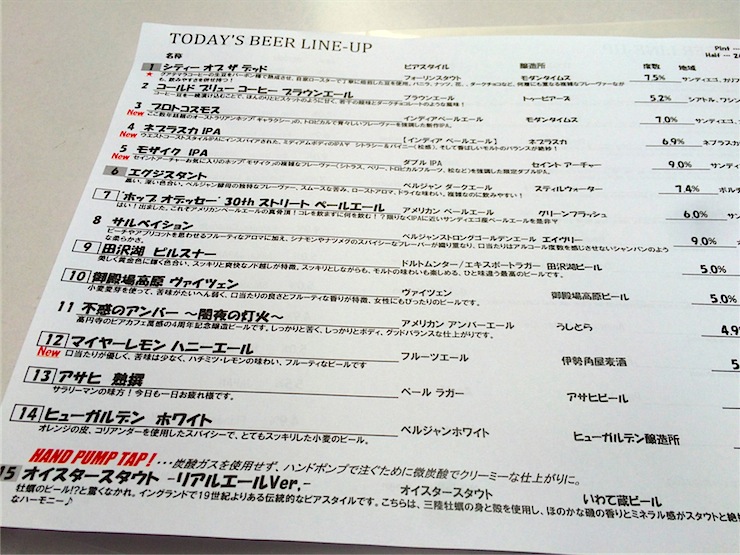 TODAY'S BEER LINE-UP
Pint
Half
名称 ビアスタイル 醸造所 度数 地域
1 シティー オブ ザ デッド フォーリンスタウト モダンタイムス 7.5% サンディエゴ、カリフ
★ グアテマラコーヒーの生豆をバーボン樽で熟成させ、自家ローストで丁寧に焙煎した豆を使用。バニラ、ナッツ、花、ダークチョコなど、何層にも重なる複雑なフレーヴァーなが
ら、飲みやすさを併せ持つ！
2 コールド ブリュー コーヒー ブラウンエール ブラウンエール トゥービアーズ 5.2% シアトル、ワシン
コーヒー豆を一晩漬け込むことで、ほんのりとビスケットのように甘く、若干の酸味とダークチョコレートのような風味！
3 プロトコスモス インディアペールエール モダンタイムス 7.0% サンディエゴ、
New ここ数年話題のオーストラリアンホップ「ギャラクシー」の、トロピカルで青々しいフレーヴァーを強調した新作IPA。
4 ネブラスカ IPA 【インディア ペールエール】 ネブラスカ 6.9% ネブラスカ
New ウエストコーストスタイルIPAにインスパイアされた、ミディアムボディのIPA▼ シトラシー＆パイニー（松感）、そして香ばしいモルトのバランスが絶妙！
5 モザイク IPA ダブル IPA セイント アーチャー 9.0% サンディエ
New セイントアーチャーお気に入りのホップ「モザイク」の複雑なフレーヴァー（シトラス、ベリー、トロピカルフルーツ、松など）を強調した限定ダブルIPA。
6 エクジスタント ベルジャン ダークエール スティルウォーター 7.4% ボルチ
黒い、深い色合い。ベルジャン酵母の独特なフレーヴァー、スムースな苦み、ローストアロマ、ドライな味わい。複雑なのに飲みやすい！
7 "ホップ オデッセー" 30th ストリート ペールエール アメリカン ペールエール グリーンフラッシュ 6.0% サン
はい！出ました。これぞアメリカンペールエールの真骨頂！コレを飲まずに何を飲む！？限りなくIPAに近いサンディエゴ産ペールエールは是非▼
8 サルベイション ベルジャンストロングゴールデンエール エイヴリー 9.0%
ピーチやアプリコットを思わせるフルーティなアロマに加え、シナモンやナツメグのスパイシーなフレーバーが織り重なり、口当たりはアルコール度数を感じさせないシャンパンのよう
な柔らかさ。
9 田沢湖 ピルスナー ドルトムンター/エキスポートラガー 田沢湖ビール 5.0%
美しく黄金色に輝く色合い、スッキリと爽快なノド越しが特徴。スッキリとしながらも、モルトの味わいも楽しめる、ひと味違う最高のビールです。
10 御殿場高原 ヴァイツェン ヴァイツェン 御殿場高原ビール 5.0%
小麦麦芽を使って、苦味がたいへん弱く、口当たりの良さとフルーティな香りが特徴、女性にもぴったりのビールです。
11 不惑のアンバー ～闇夜の灯火～ アメリカン アンバーエール うしとら 4.9
高円寺のビアカフェ萬感の4周年記念醸造ビールです。しっかりと苦く、しっかりとボディ、グッドバランスな仕上がりです。
12 マイヤーレモン ハニーエール フルーツエール 伊勢角屋麦酒 5
New 口当たりが優しく、苦味は少なく、ハチミツ・レモンの味わい、フルーティなビールです
13 アサヒ 熟撰 ペール ラガー アサヒビール
サラリーマンの味方！今日も一日お疲れ様です。
14 ヒューガルデン ホワイト ベルジャンホワイト ヒューガルデン醸造所
オレンジの皮、コリアンダーを使用したスパイシーで、とてもスッキリした小麦のビール。
HAND PUMP TAP！・・・炭酸ガスを使用せず、ハンドポンプで注ぐために微炭酸でクリーミーな仕上がりに。
15 オイスタースタウト -リアルエールVer.- オイスタースタウト いわて蔵ビール
牡蠣のビール!?と驚くなかれ。イングランドで19世紀よりある伝統的なビアスタイルです。こちらは、三陸牡蠣の身と殻を使用し、ほのかな磯の香りとミネラル感がスタウトと絶
なハーモニー♪